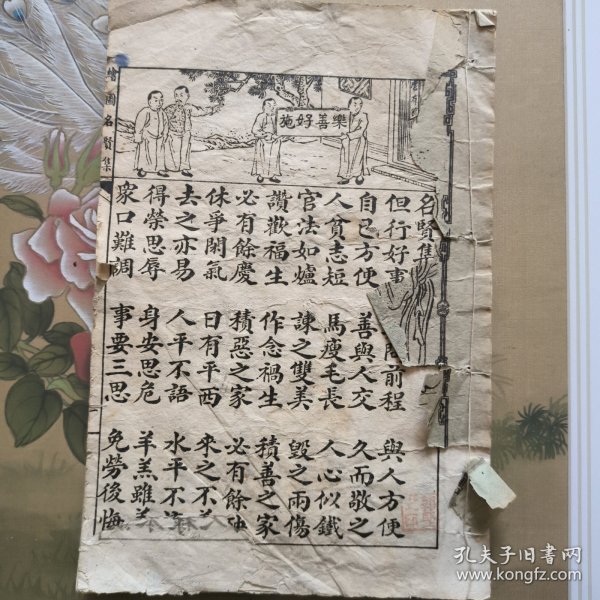 繪圖名賢集
樂善好施
名賢集
但行好事 前程 與人方便
自己方便 善與人交 久而敬之
人貧志短 馬瘦毛長 人心似鐵
官法如爐 諫之雙美 毀之兩傷
讚歎福生 作念禍生 積善之家
必有餘慶 積惡之家 必有餘
休爭閑氣 日有平西 來之不
去之亦易 人平不語 水平不
得榮思辱 身安思危 羊羔雖
眾口難調 事要三思 免勞後悔
孔夫子旧书网
www.kongfz.com